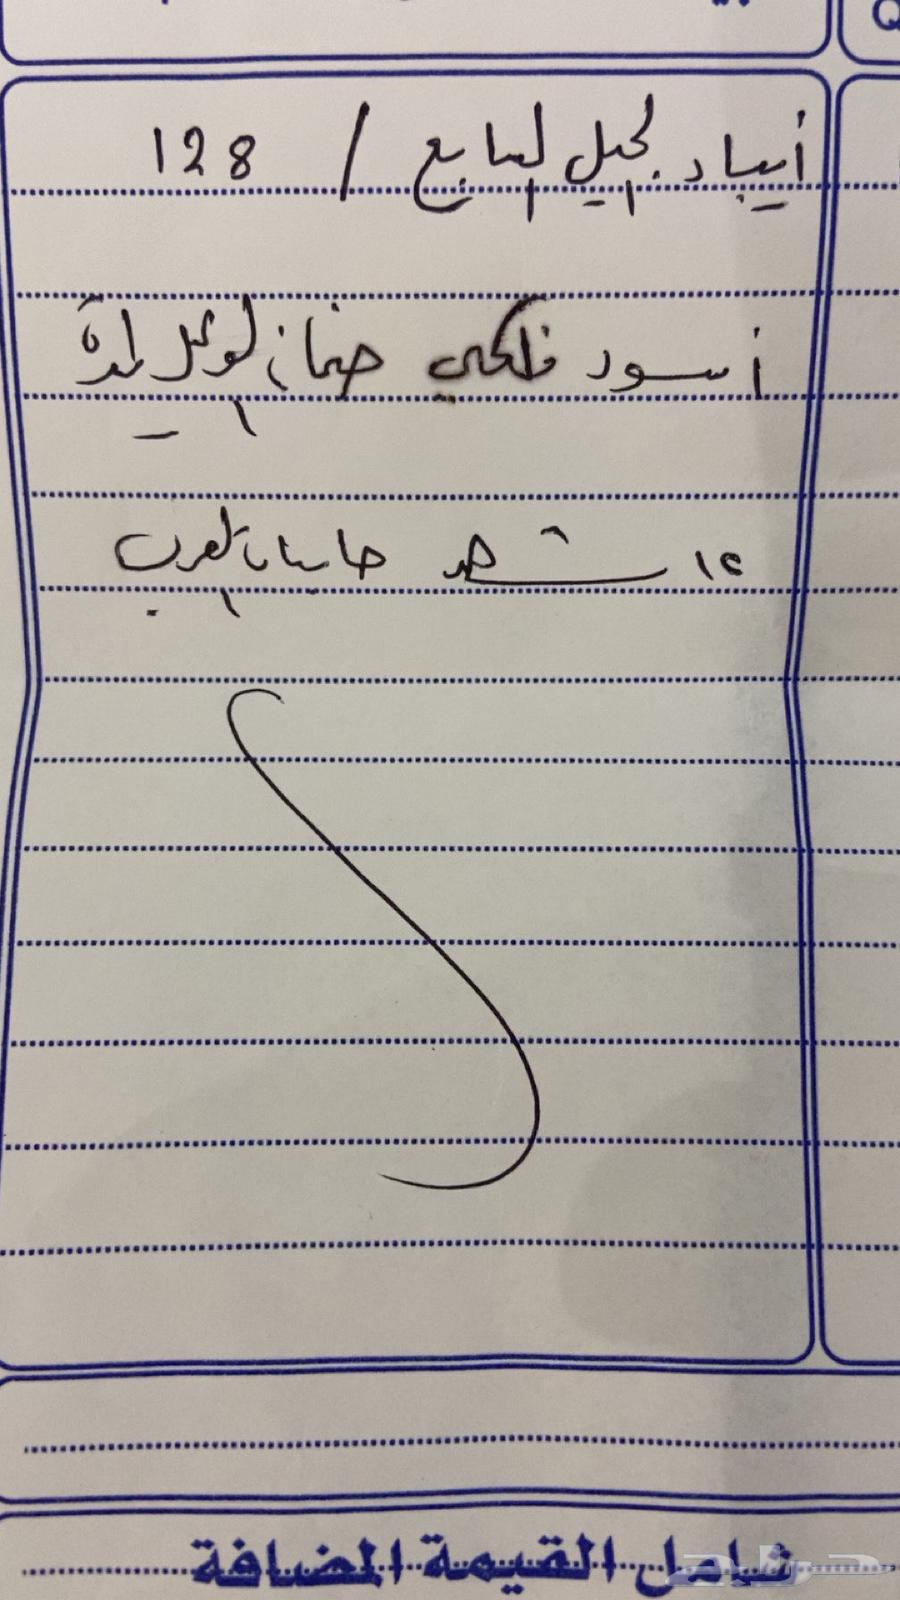 أيباد الجيل السابع / 128
أسود فلكي ضمان الوكيل لمدة
١٢ شهر حاسبات العرب
شامل القيمة المضافة
حراج